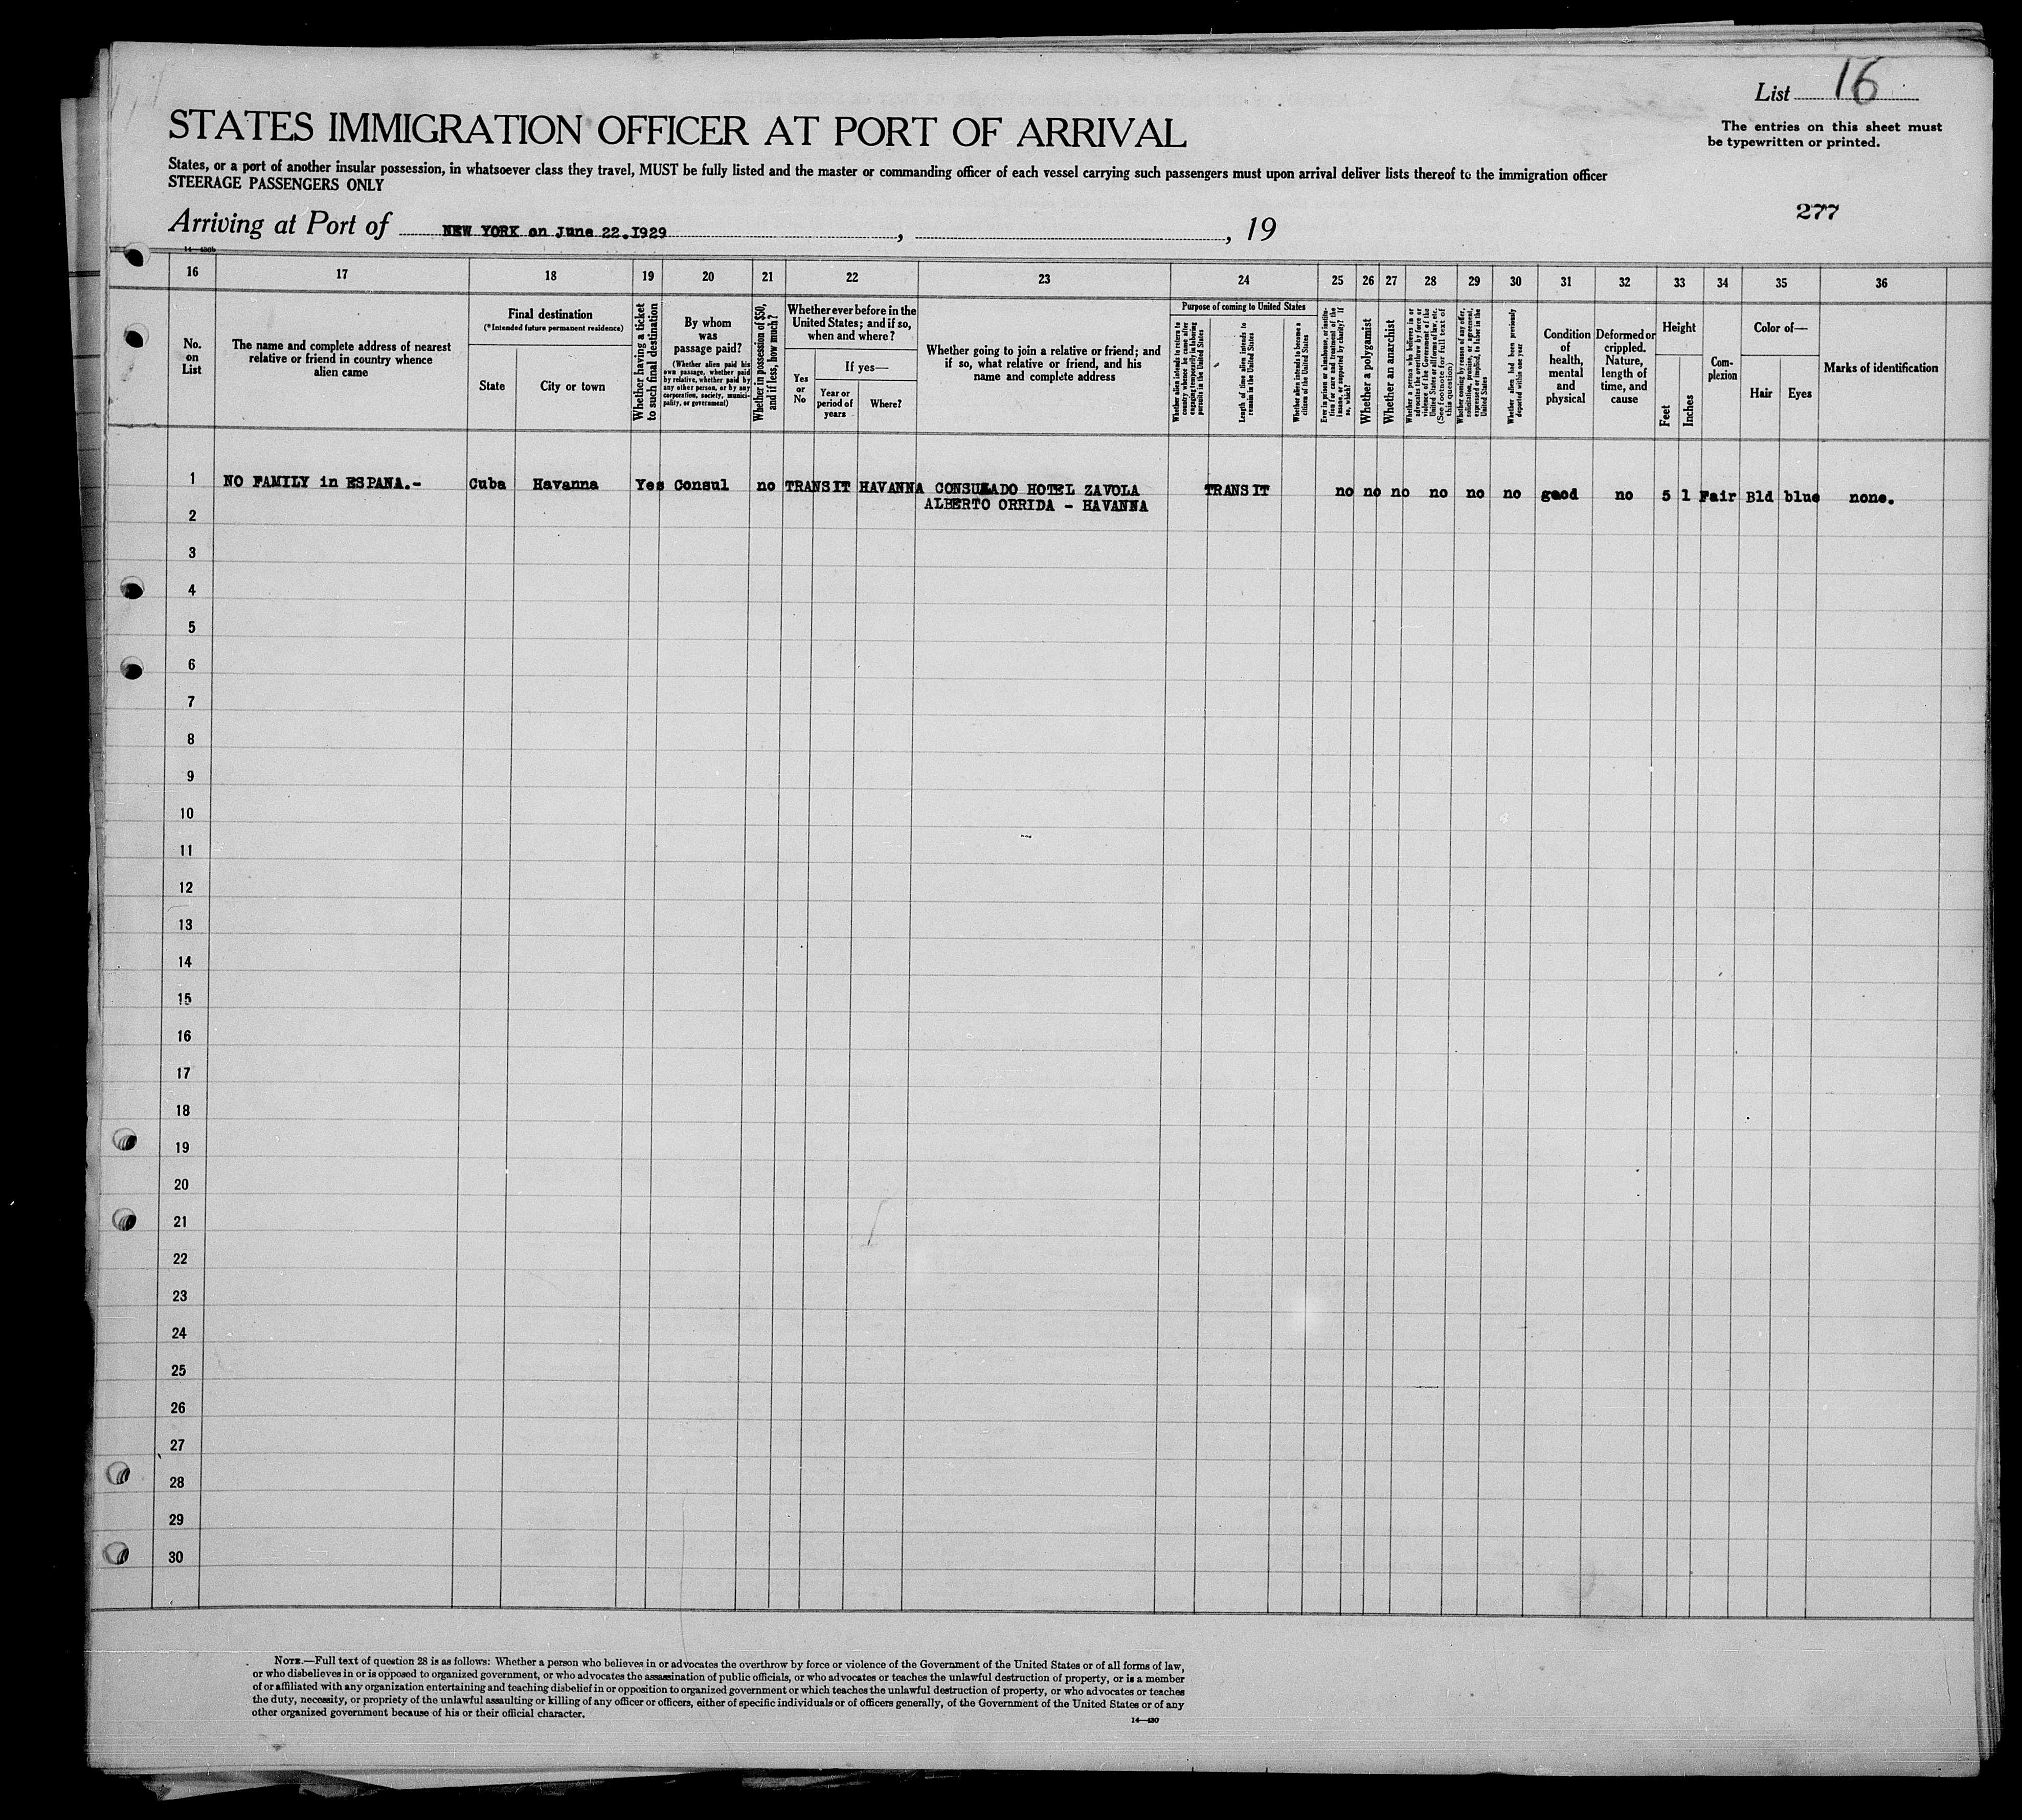 List 16
STATES IMMIGRATION OFFICER AT PORT OF ARRIVAL
The entries on this sheet must
be typewritten or printed.
States, or a port of another insular possession, in whatsoever class they travel, MUST be fully listed and the master or commanding officer of each vessel carrying such passengers must upon arrival deliver lists thereof to the immigration officer
STEERAGE PASSENGERS ONLY
277
Arriving at Port of NEW YORK on June 22.1929, , 19
14—430b
16 17 18 19 20 21 22 23 24 25 26 27 28 29 30 31 32 33 34 35 36
No.
on
List
The name and complete address of nearest
relative or friend in country whence
alien came
Final destination
(*Intended future permanent residence)
State
City or town
Whether having a ticket
to such final destination
By whom
was
passage paid?
(Whether alien paid his
own passage, whether paid
by relative, whether paid by
any other person, or by any
corporation, society, munici-
pality, or government)
Whether in possession of $50,
and if less, how much?
Whether ever before in the
United States; and if so,
when and where?
Yes
or
No
If yes—
Year or
period of
years
Where?
Whether going to join a relative or friend; and
if so, what relative or friend, and his
name and complete address
Purpose of coming to United States
Whether alien intends to return to
country whence he came after
engaging temporarily in laboring
pursuits in the United States
Length of time alien intends to
remain in the United States
Whether alien intends to become a
citizen of the United States
Ever in prison or almshouse, or institu-
tion for care and treatment of the
insane, or supported by charity? If
so, which?
Whether a polygamist
Whether an anarchist
Whether a person who believes in or
advocates the overthrow by force or
violence of the Government of the
United States or all forms of law, etc.
(See footnote for full text of
this question)
Whether coming by reason of any offer,
solicitation, promise, or agreement,
expressed or implied, to labor in the
United States
Whether alien had been previously
deported within one year
Condition
of
health,
mental
and
physical
Deformed or
crippled.
Nature,
length of
time, and
cause
Height
Feet
Inches
Com-
plexion
Color of—
Hair
Eyes
Marks of identification
1 NO FAMILY in ESPANA.- Cuba Havanna Yes Consul no TRANSIT HAVANNA CONSULADO HOTEL ZAVOLA TRANSIT no no no no no no good no 5 1 Fair Bld blue none.
ALBERTO ORRIDA - HAVANNA
2
3
4
5
6
7
8
9
10
11
12
13
14
15
16
17
18
19
20
21
22
23
24
25
26
27
28
29
30
NOTE.—Full text of question 28 is as follows: Whether a person who believes in or advocates the overthrow by force or violence of the Government of the United States or of all forms of law,
or who disbelieves in or is opposed to organized government, or who advocates the assassination of public officials, or who advocates or teaches the unlawful destruction of property, or is a member
of or affiliated with any organization entertaining and teaching disbelief in or opposition to organized government or which teaches the unlawful destruction of property, or who advocates or teaches
the duty, necessity, or propriety of the unlawful assaulting or killing of any officer or officers, either of specific individuals or of officers generally, of the Government of the United States or of any
other organized government because of his or their official character.
14—430